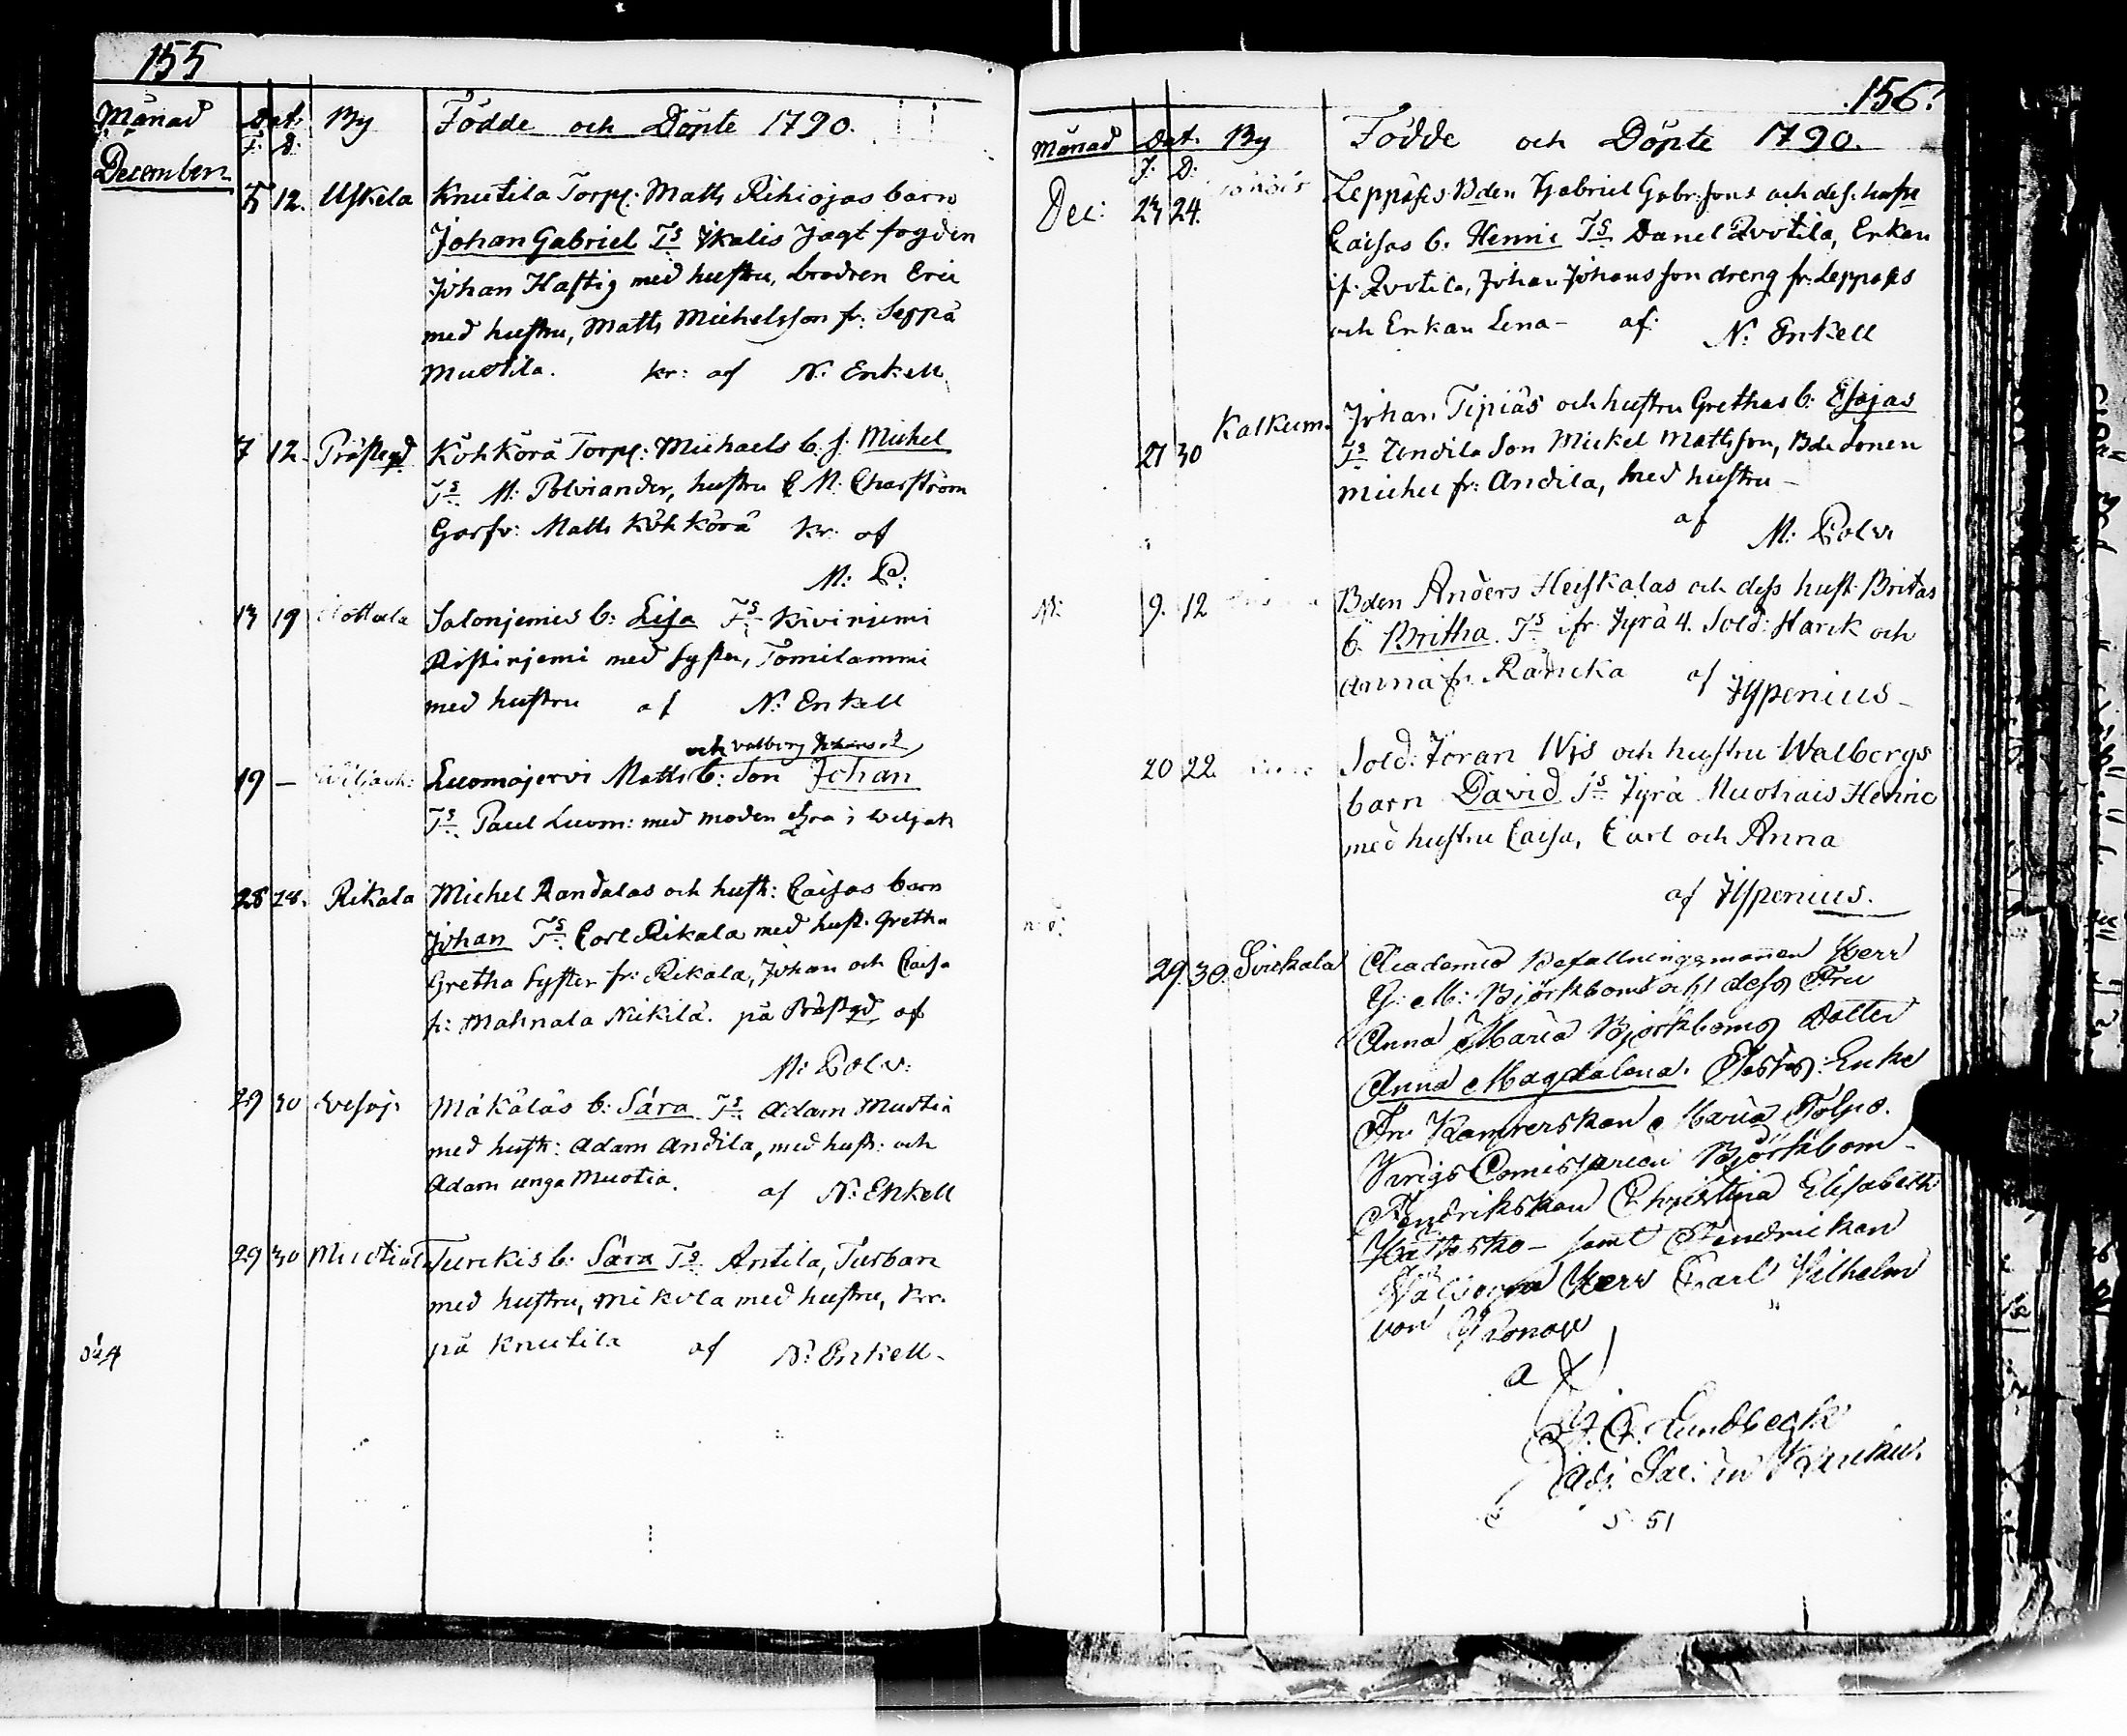 155
Månad Dat. By Födde och Döpte 1790.
F. D.
December
5 12. Uskela Knutila Torp: Matts Rihiojas barn
Johan Gabriel Ts Ikalis Jagt fogden
Johan Hastig med hustru, brodren Eric
med hustru, Matts Michelsson fr: Seppä
Muotila. kr: af N: Enkell
7 12. Prästegd Köhkörä Torp: Michaels b. s. Michel
Ts M: Polviander, hustru C M: Charström
Garfv: Matts Köhkörä kr. af
M: P:
13 19 Salonjemis b: Lisa Ts Kiviniemi
Ristinjemi med syster, Tomilammi
med hustru af N: Enkell
och Valborg
19 — Luomajervi Matts b: son Johan
Ts Paul Luom: med moden i Wiljak
28 28. Rikala Michel Randalas och hustr: Caisas barn
Johan Ts Carl Rikala med hust. Gretha
Gretha syster fr: Rikala, Johan och Caisa
fr: Mahnala Nickilä. på Prästgd af
M: Polv:
29 30 Vesaj: Mäkäläs b: Sara Ts Adam Muotia
med hustr: Adam Andila, med hustr: och
Adam unga Muotia. af N: Enkell
29 30 Muotiala Turckis b: Sara Ts Antila, Turban
med hustru, Mikola med hustru, kr.
på Knutila af N: Enkell
156.
Månad Dat. By Födde och Döpte 1790.
F. D.
Dec: 23 24. Leppäses Bden Gabriel Gabr:sons och dess hustr
Caisas b. Henric Ts Danel Zvotila, Erkan
if. Zvotila, Johan Johansson dreng fr: Leppäses
och Erkan Lena – af: N: Enkell
27 30 Kalkum. Johan Tipiäs och hustru Grethas b: Esajas
Ts son Mickel Mattsson, Bdesonen
Michel fr: Andila, med hustru –
af
M: Polv
N: 9. 12 Bden Anders Heiskalas och dess hust. Britas
b. Britha. Ts ifr. Jyrä 4. Sold: Harck och
Anna fr. Raducka af Ypenius –
20 22. Sold: Jöran Wis och hustru Walbergs
barn David Ts Jyrä Muotiais Henric
med hustru Caisa, Carl och Anna
af Ypenius.
29. 30. Sviekala Academie Befallningsmannen Herr
G: M: Björkboms och dess Fru
Anna Maria Björkboms Dotter
Anna Magdalena. Testes: Enke
Fru Kamrerskan Maria Tolpo.
Krigs Comissarien Björkbom –
Fendrikskan Christina Elisabeth
samt Fendricken
Välborne Herr Carl Wilhelm
von
af
Lundbeck
Adj. Sac: in
S. 51